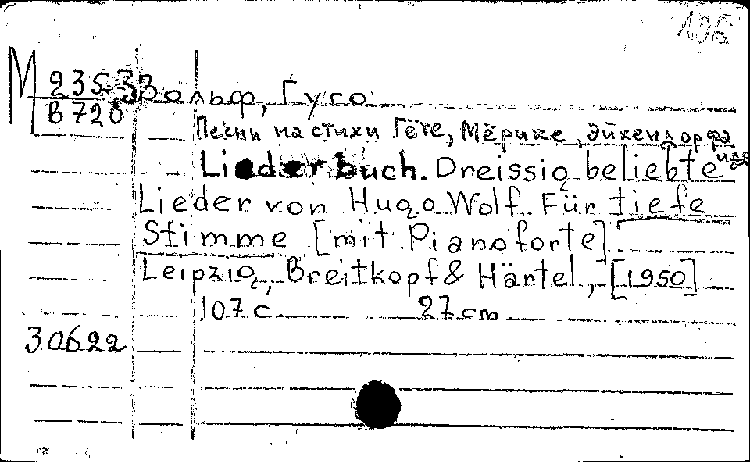 М 235-33
В 720
Вольф, Гуго.
Песни на стихи Гёте, Мёрике, Эйхендорфа и др.
Liederbuch. Dreissig beliebte
Lieder von Hugo Wolf. Für tiefe
Stimme [mit Pianoforte].
Leipzig, Breitkopf & Härtel, [1950]
107 с. 27 cm.
30622